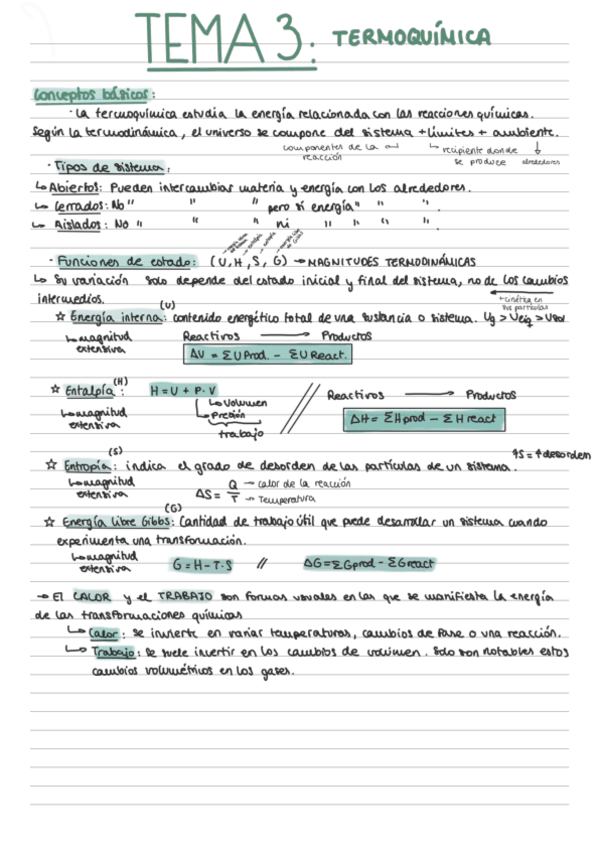 TEMA 3: TERMOQUÍMICA
Conceptos básicos:
· La termoquímica estudia la energía relacionada con las reacciones químicas.
Según la termodinámica, el universo se compone del sistema + límites + ambiente.
componentes de la reacción
recipiente donde se produce
alrededores
· Tipos de sistema:
↳ Abiertos: Pueden intercambiar materia y energía con los alrededores.
↳ Cerrados: No " " " pero sí energía " " ".
↳ Aislados: No " " " ni " " ".
· Funciones de estado: (U, H, S, G) → MAGNITUDES TERMODINÁMICAS
↳ Su variación solo depende del estado inicial y final del sistema, no de los cambios
intermedios.
+ cinética en sus partículas
(U)
☆ Energía interna: contenido energético total de una sustancia o sistema. Ug > Uliq > Usol
↳ magnitud extensiva
Reactivos → Productos
ΔU = ΣU Prod. - ΣU React.
(H)
☆ Entalpía: H = U + P · V
↳ Volumen
↳ Presión
trabajo
↳ magnitud extensiva
Reactivos → Productos
ΔH = ΣH prod - ΣH react
(S)
↑S = ↑desorden
☆ Entropía: indica el grado de desorden de las partículas de un sistema.
↳ magnitud extensiva
ΔS = Q/T
→ calor de la reacción
→ Temperatura
(G)
☆ Energía Libre Gibbs: Cantidad de trabajo útil que puede desarrollar un sistema cuando
experimenta una transformación.
↳ magnitud extensiva
G = H - T · S // ΔG = ΣGprod - ΣGreact
→ El CALOR y el TRABAJO son formas usuales en las que se manifiesta la energía
de las transformaciones químicas
↳ Calor: se invierte en variar temperaturas, cambios de fase o una reacción.
↳ Trabajo: se suele invertir en los cambios de volumen. Solo son notables estos
cambios volumétricos en los gases.